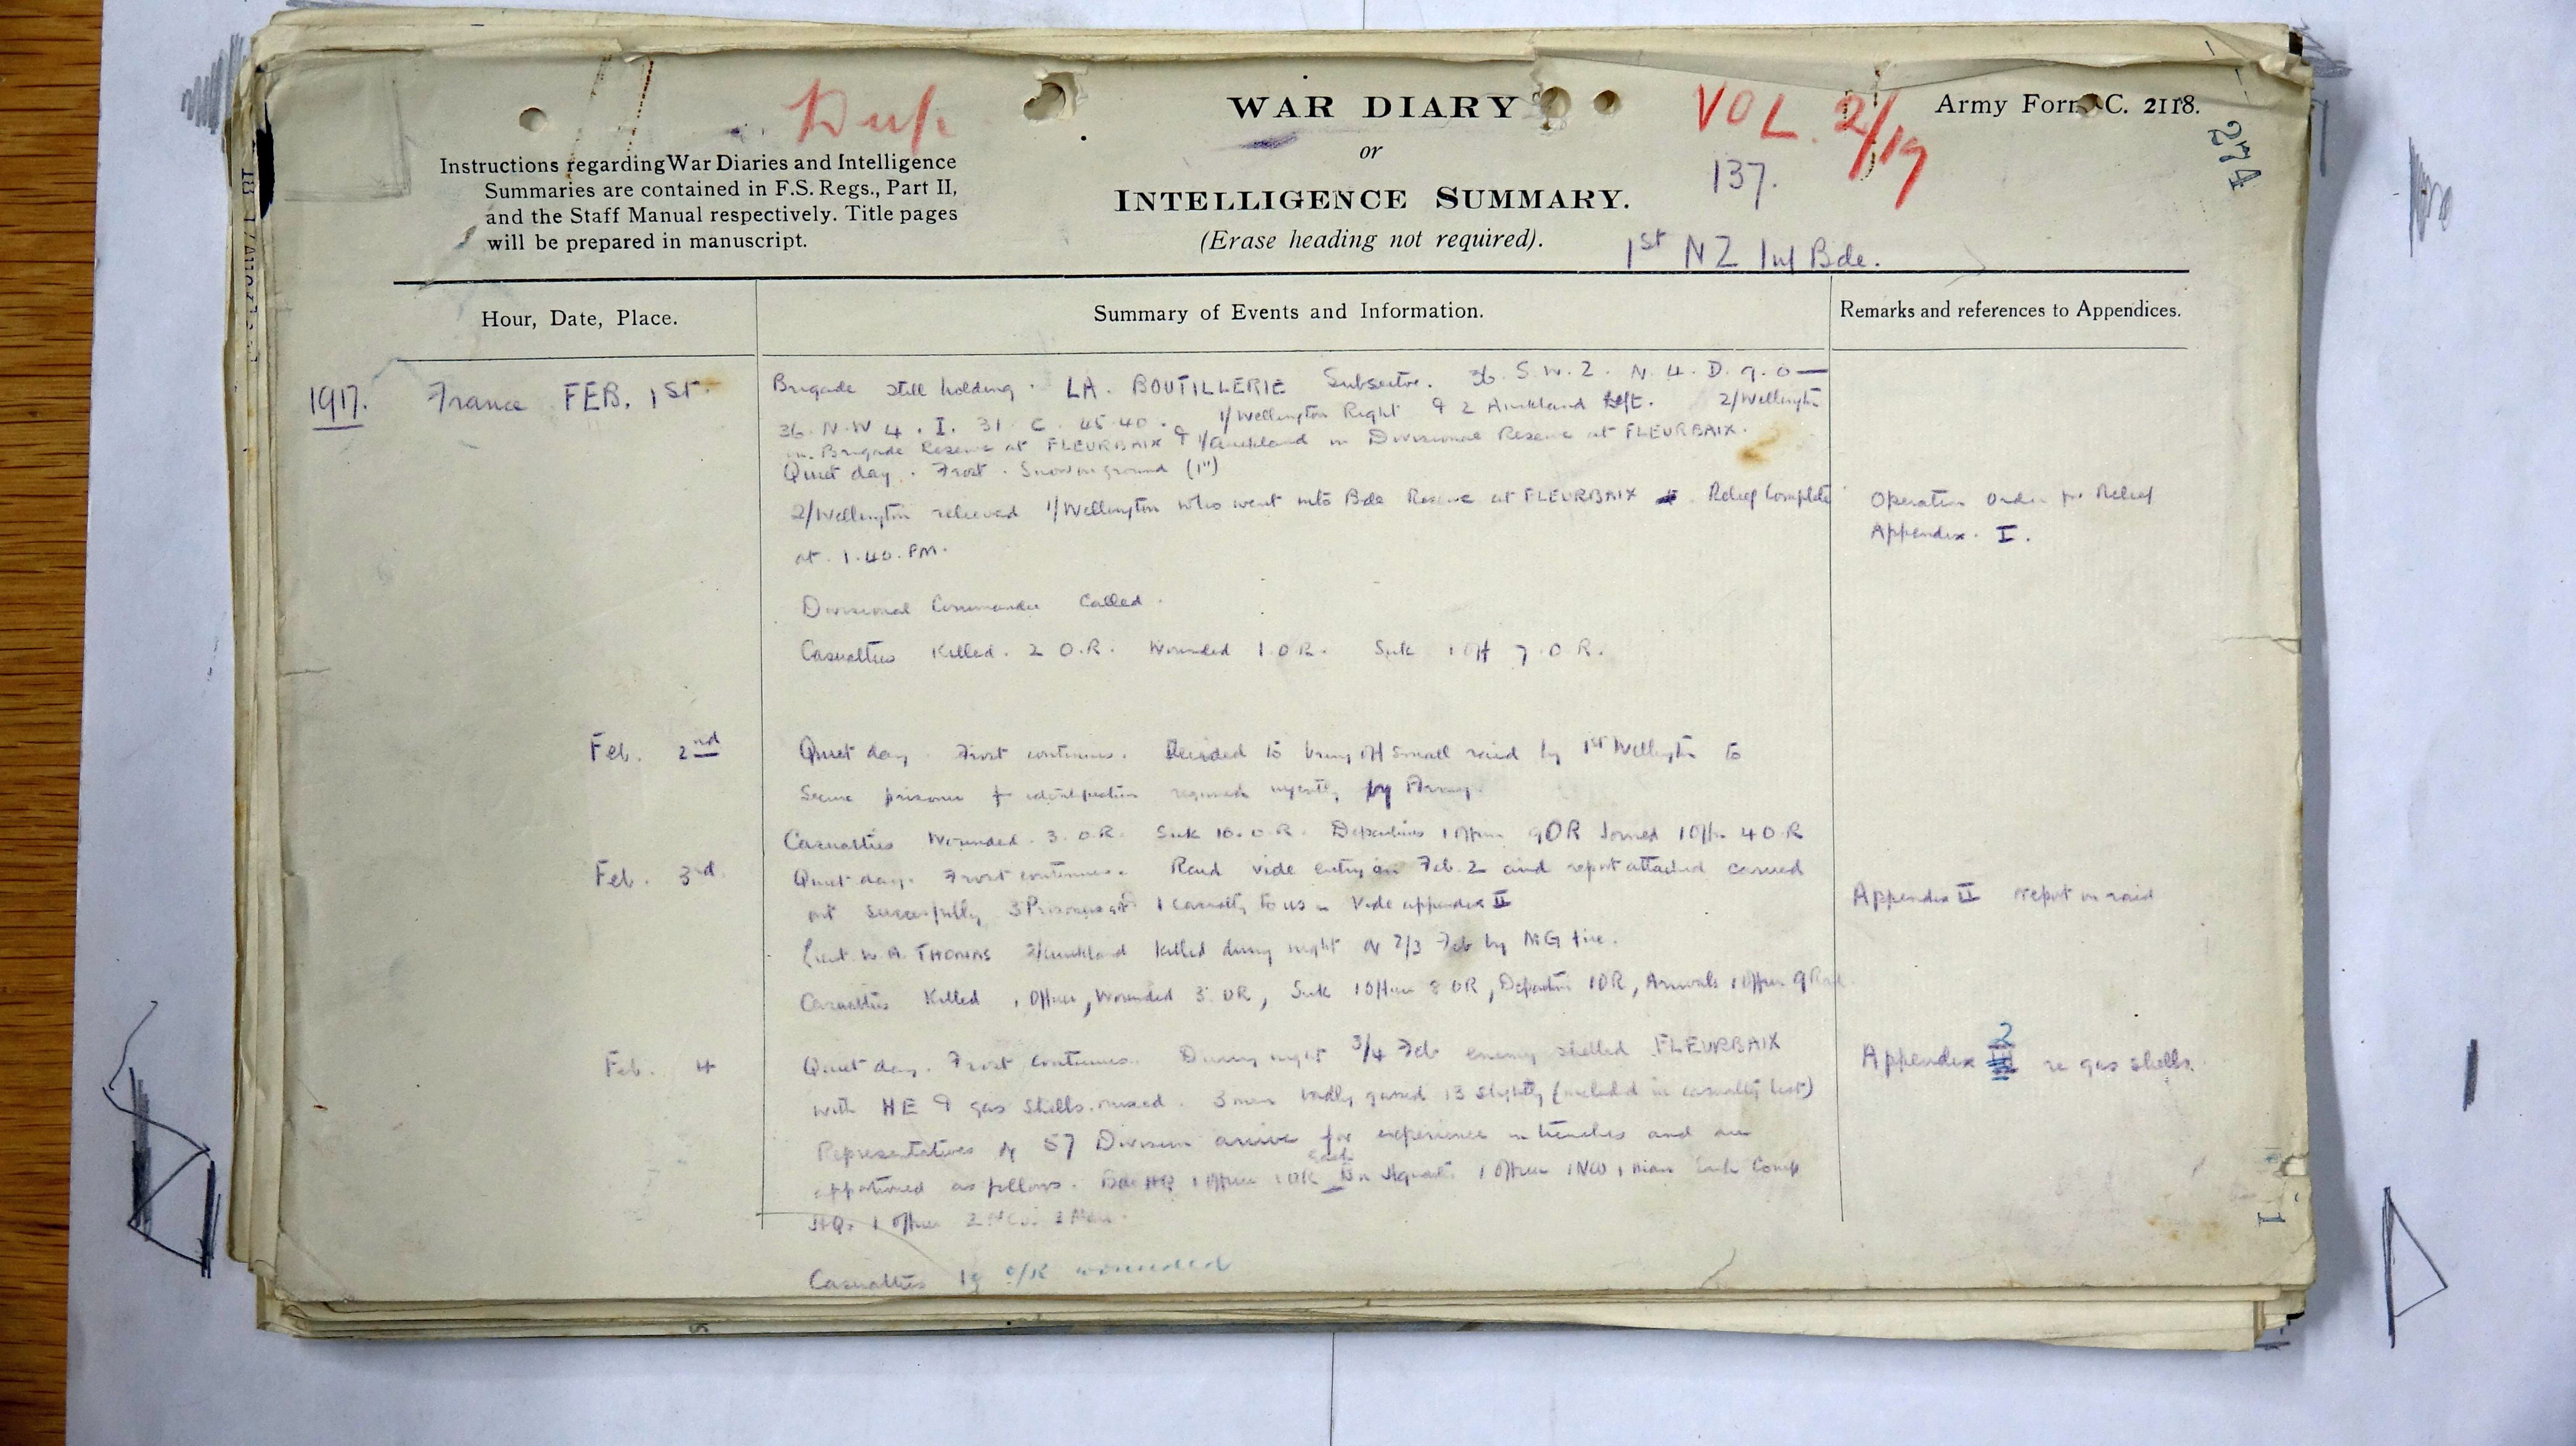 Dup.
WAR DIARY
or
INTELLIGENCE SUMMARY.
(Erase heading not required).
VOL. 2/19
137.
Army Form C. 2118.
274
Instructions regarding War Diaries and Intelligence
Summaries are contained in F.S. Regs., Part II,
and the Staff Manual respectively. Title pages
will be prepared in manuscript.
1st NZ Inf Bde.
Hour, Date, Place.
Summary of Events and Information.
Remarks and references to Appendices.
1917. France FEB. 1st.
Brigade still holding LA. BOUTILLERIE Subsector. 36. S.W.2. N.4.D.9.0 —
36. N.W 4. I. 31. C. 45.40. 1/Wellington Right & 2 Auckland left. 2/Wellington
in Brigade Reserve at FLEURBAIX & 1/Auckland in Divisional Reserve at FLEURBAIX.
Quiet day. Frost. Snow on ground (1")
2/Wellington relieved 1/Wellington who went into Bde Reserve at FLEURBAIX Relief Complete
at 1.40. PM.
Operation Order for Relief
Appendix. I.
Divisional Commander called.
Casualties Killed. 2 O.R. Wounded 1 O.R. Sick 1 Off 7.O R.
Feb. 2nd
Quiet day. Frost continues. Decided to bring off small raid by 1st Wellington to
secure prisoner & identification required urgently by Army.
Casualties Wounded. 3. O.R. Sick 10. O.R. Departures 1 Officer 9OR Joined 1 Offr 4 O.R
Feb. 3rd.
Quiet day. Frost continues. Raid vide entry on Feb. 2 and report attached carried
out successfully 3 Prisoners 1 casualty to us Vide appendix II
Appendix II report on raid
Lieut. W. A. THOMAS 2/Auckland killed during night of 2/3 Feb by MG fire.
Casualties Killed 1 Officer, Wounded 3 OR, Sick 1 Officer 8 OR, Departures 1OR, Arrivals 1 Officer 9
Feb. 4
Quiet day. Frost continues. During night 3/4 Feb enemy shelled FLEURBAIX
with HE & gas shells mixed. 3 men badly gassed 13 slightly (included in casualty list)
Appendix 2 re gas shells.
Representatives of 57 Division arrive for experience in trenches and are
apportioned as follows. Bde HQ 1 Officer 1 OR each Bn Hqrs 1 Officer 1 NCO 1 man Each Comp
HQ. 1 Officer 2 NCOs 2 Men.
Casualties o/R wounded